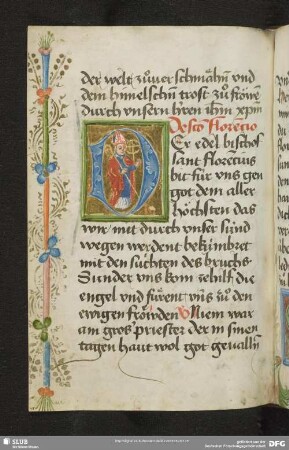 der welt zuͦuerschmähn̄ vnd
dem himelschn̄ trost zuͦ fröwē
durch vnsern hren ihm̄ xp̄m
De sc̄o Florecio
Er edel bischof
sant florecius
bit für vns gen
got dem aller
höchsten das
wir mit durch vnser sünd
wegen werdent bekümbret
mit den suchten des bruchs
Sunder vns kom ze hilf die
engel vnd füerent vns zuͦ den
ewigen fröiden V Niem war
am gros priester der in sinen
tagen haut wol got geualln̄
SLUB
DFG